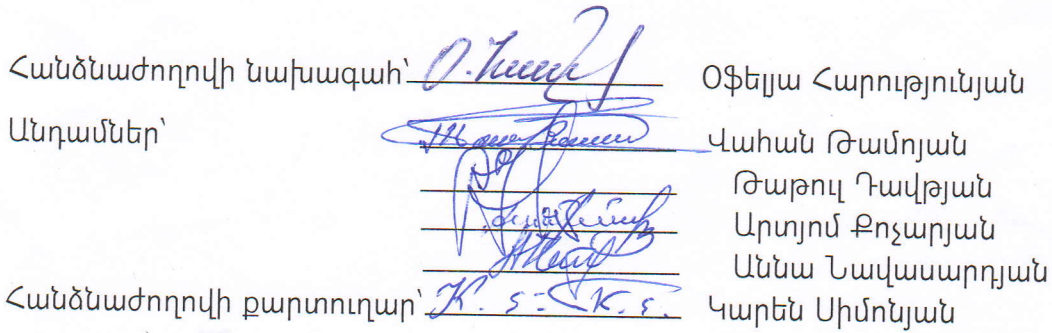 Հանձնաժողովի նախագահ՝ Օֆելյա Հարությունյան
Անդամներ՝ Վահան Թամոյան
Թաթուլ Դավթյան
Արտյոմ Քոչարյան
Աննա Նավասարդյան
Հանձնաժողովի քարտուղար՝ Կարեն Սիմոնյան